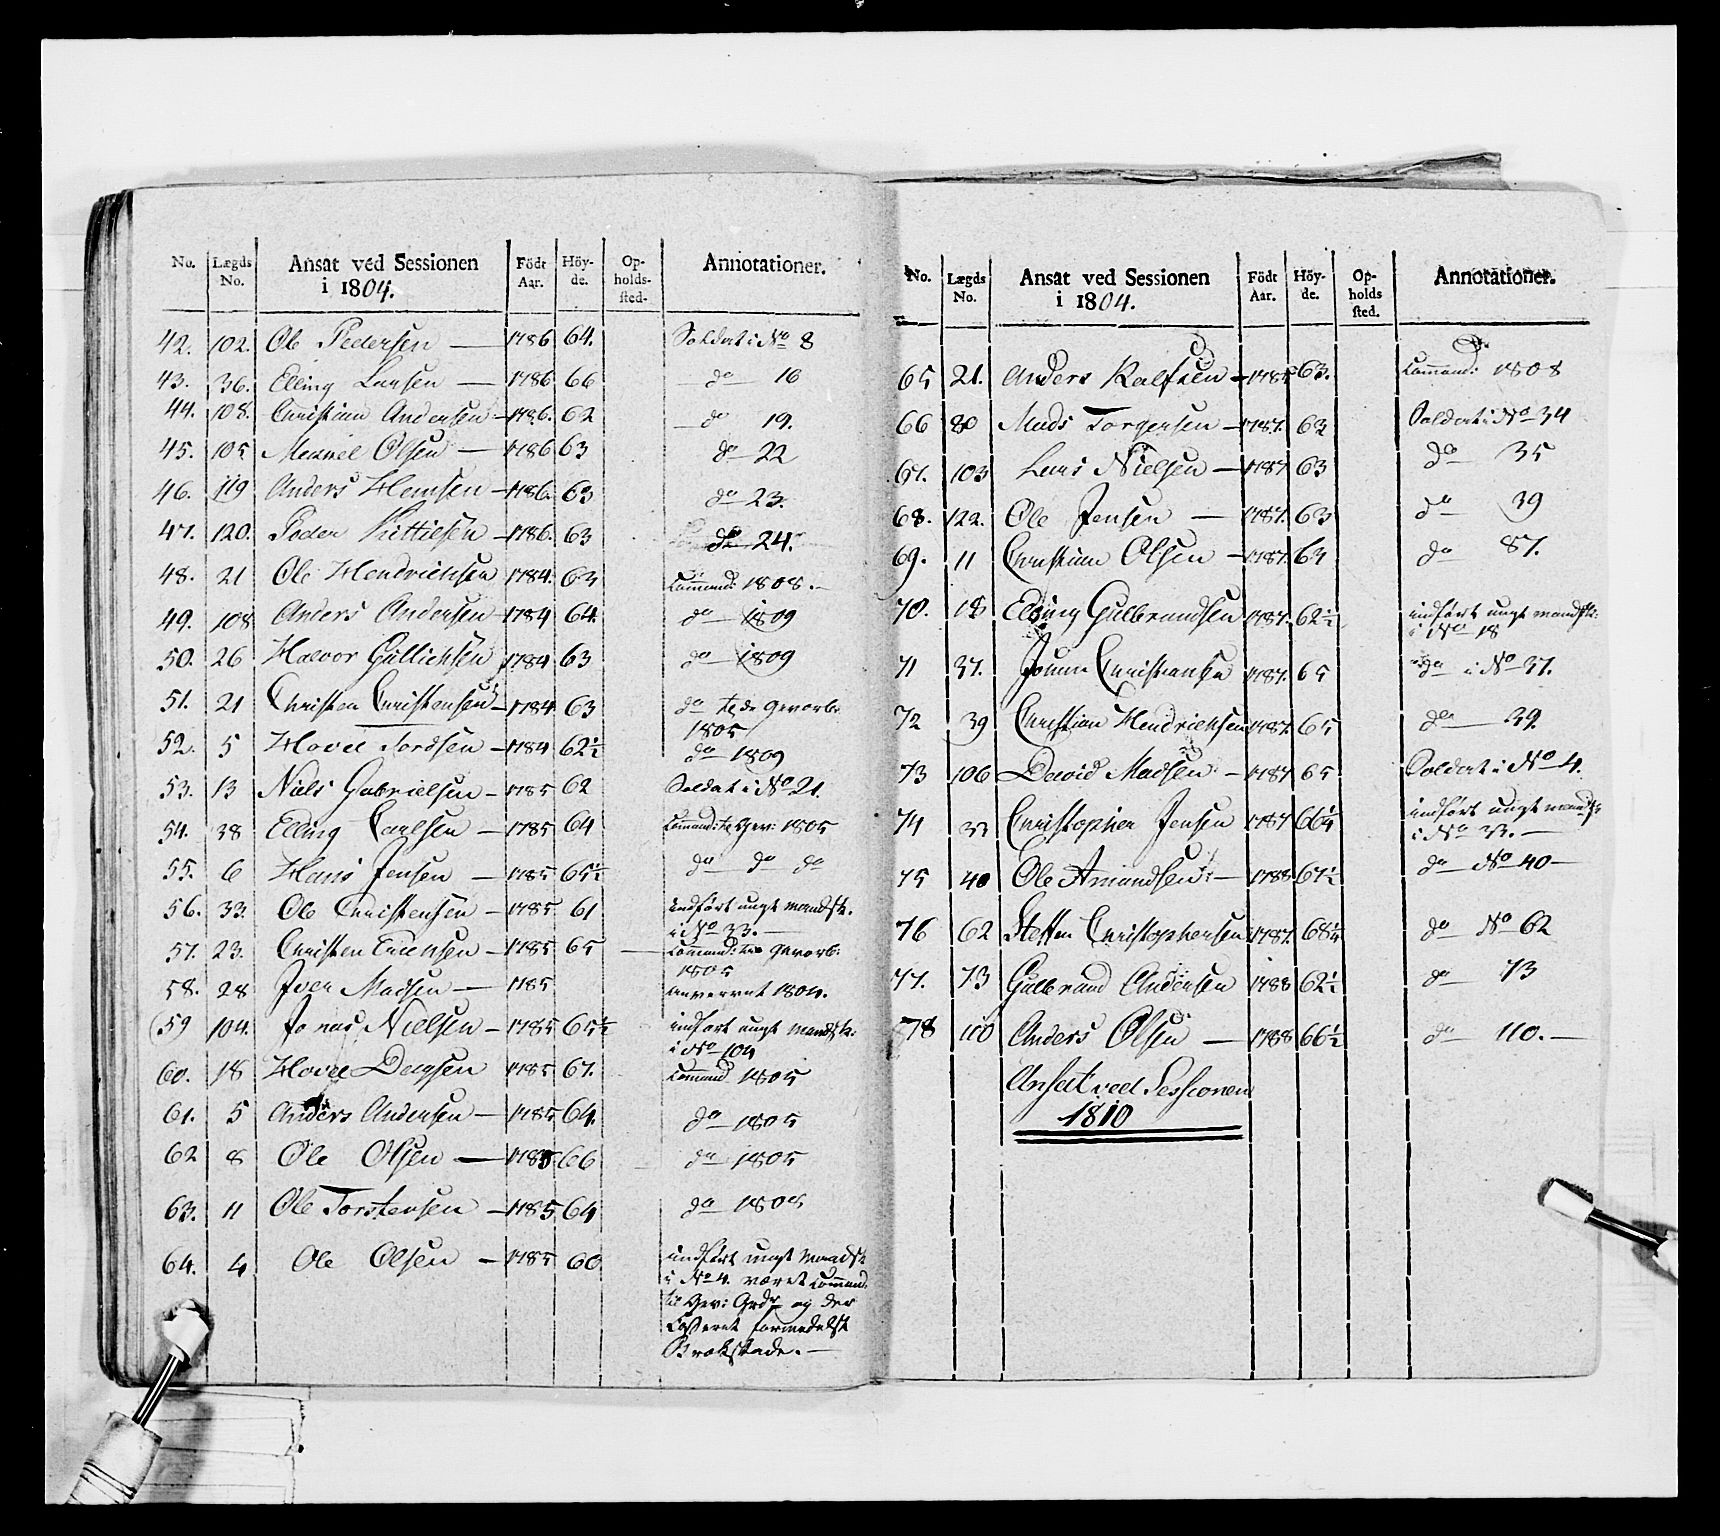 No. Lægds No. Ansat ved Sessionen i 1804. Födt Aar. Höy-de. Op-holds-sted. Annotationer.
42. 102. Ole Pedersen — 1786 64. Soldat i No 8
43. 36. Elling Larsen — 1786 66 do 16
44. 108. Christian Andersen — 1786. 62 do 19.
45. 105 Olsen — 1786 63 do 22
46. 119 Anders Hansen — 1786. 63 do 23.
47. 120. Peder Kittilsen — 1786. 63 do 24.
48. 21 Ole Hendrichsen 1784. 63 Command: 1808. —
49. 108 Anders Andersen — 1784 64. do 1809
50. 26 Halvor Gullichsen 1784 63 do 1809
51. 21 Christen Christensen — 1784 63 do til Gevorb:
1805
52. 5 Hovel Tordsen — 1784 62½ do 1809
53. 13 Niels Gabrielsen — 1785 62 Soldat i No 21.
54. 38 Elling Carlsen — 1785 64 Command: til Gev: 1805
55. 6 Hans Jensen — 1785 65½ do do do
56. 33. Ole Christensen — 1785 61 indført ungt Mandsk.
i No 33. —
57. 23. Christen Erichsen — 1785 65 — Command: til Gevorb:
1805
58. 28 Iver Madsen — 1785 1804.
59 104. Jonas Nielsen — 1785 65½ indført ungt Mandsk:
i No 104
60. 18 Hovel Dagsen 1785 67. Command 1805
61. 5 Anders Andersen — 1785 64. do 1805
62 8 Ole Olsen — 1785 66 do 1805
63. 11 Ole Torstensen — 1785 64 do 1808
64. 4 Ole Olsen — 1785 60 indført ungt Mandsk
i No 4. været Command:
til Gev: Grdr og der
Casseret formedelst
Brokskade. —
No. Lægds No. Ansat ved Sessionen i 1804. Födt Aar. Höy-de. Op-holds sted. Annotationer.
65 21. Anders Ralfsen — 1785 63. Command: 1808
66 80 Mads Torgersen — 1787. 63 Soldat i No 34
67. 103 Lars Nielsen — 1787 63 do 35
68. 122. Ole Jensen — 1787. 63 do 39
69. 11 Christian Olsen — 1787. 64 do 87.
70. 18 Elling Gulbrandsen 1787. 62½ indført ungt Mandsk:
i No 18
71 37. Christiansen 1787. 65 do i No 37.
72 39 Christian Hendrichsen 1787. 65 do 39.
73 106 David Madsen — 1787 65 Soldat i No 4.
74 33 Christopher Jensen 1787 66¼ indført ungt Mandsk
i No 33. —
75 40 Ole Amundsen — 1788 67½ do No 40 —
76 62 Steffen Christophersen 1787. 68¼ do No 62
77. 73 Gulbrand Andersen 1788 62½ do 73
78 110 Anders Olsen — 1788 66½ do 110. —
Ansat ved Sessionen
1810